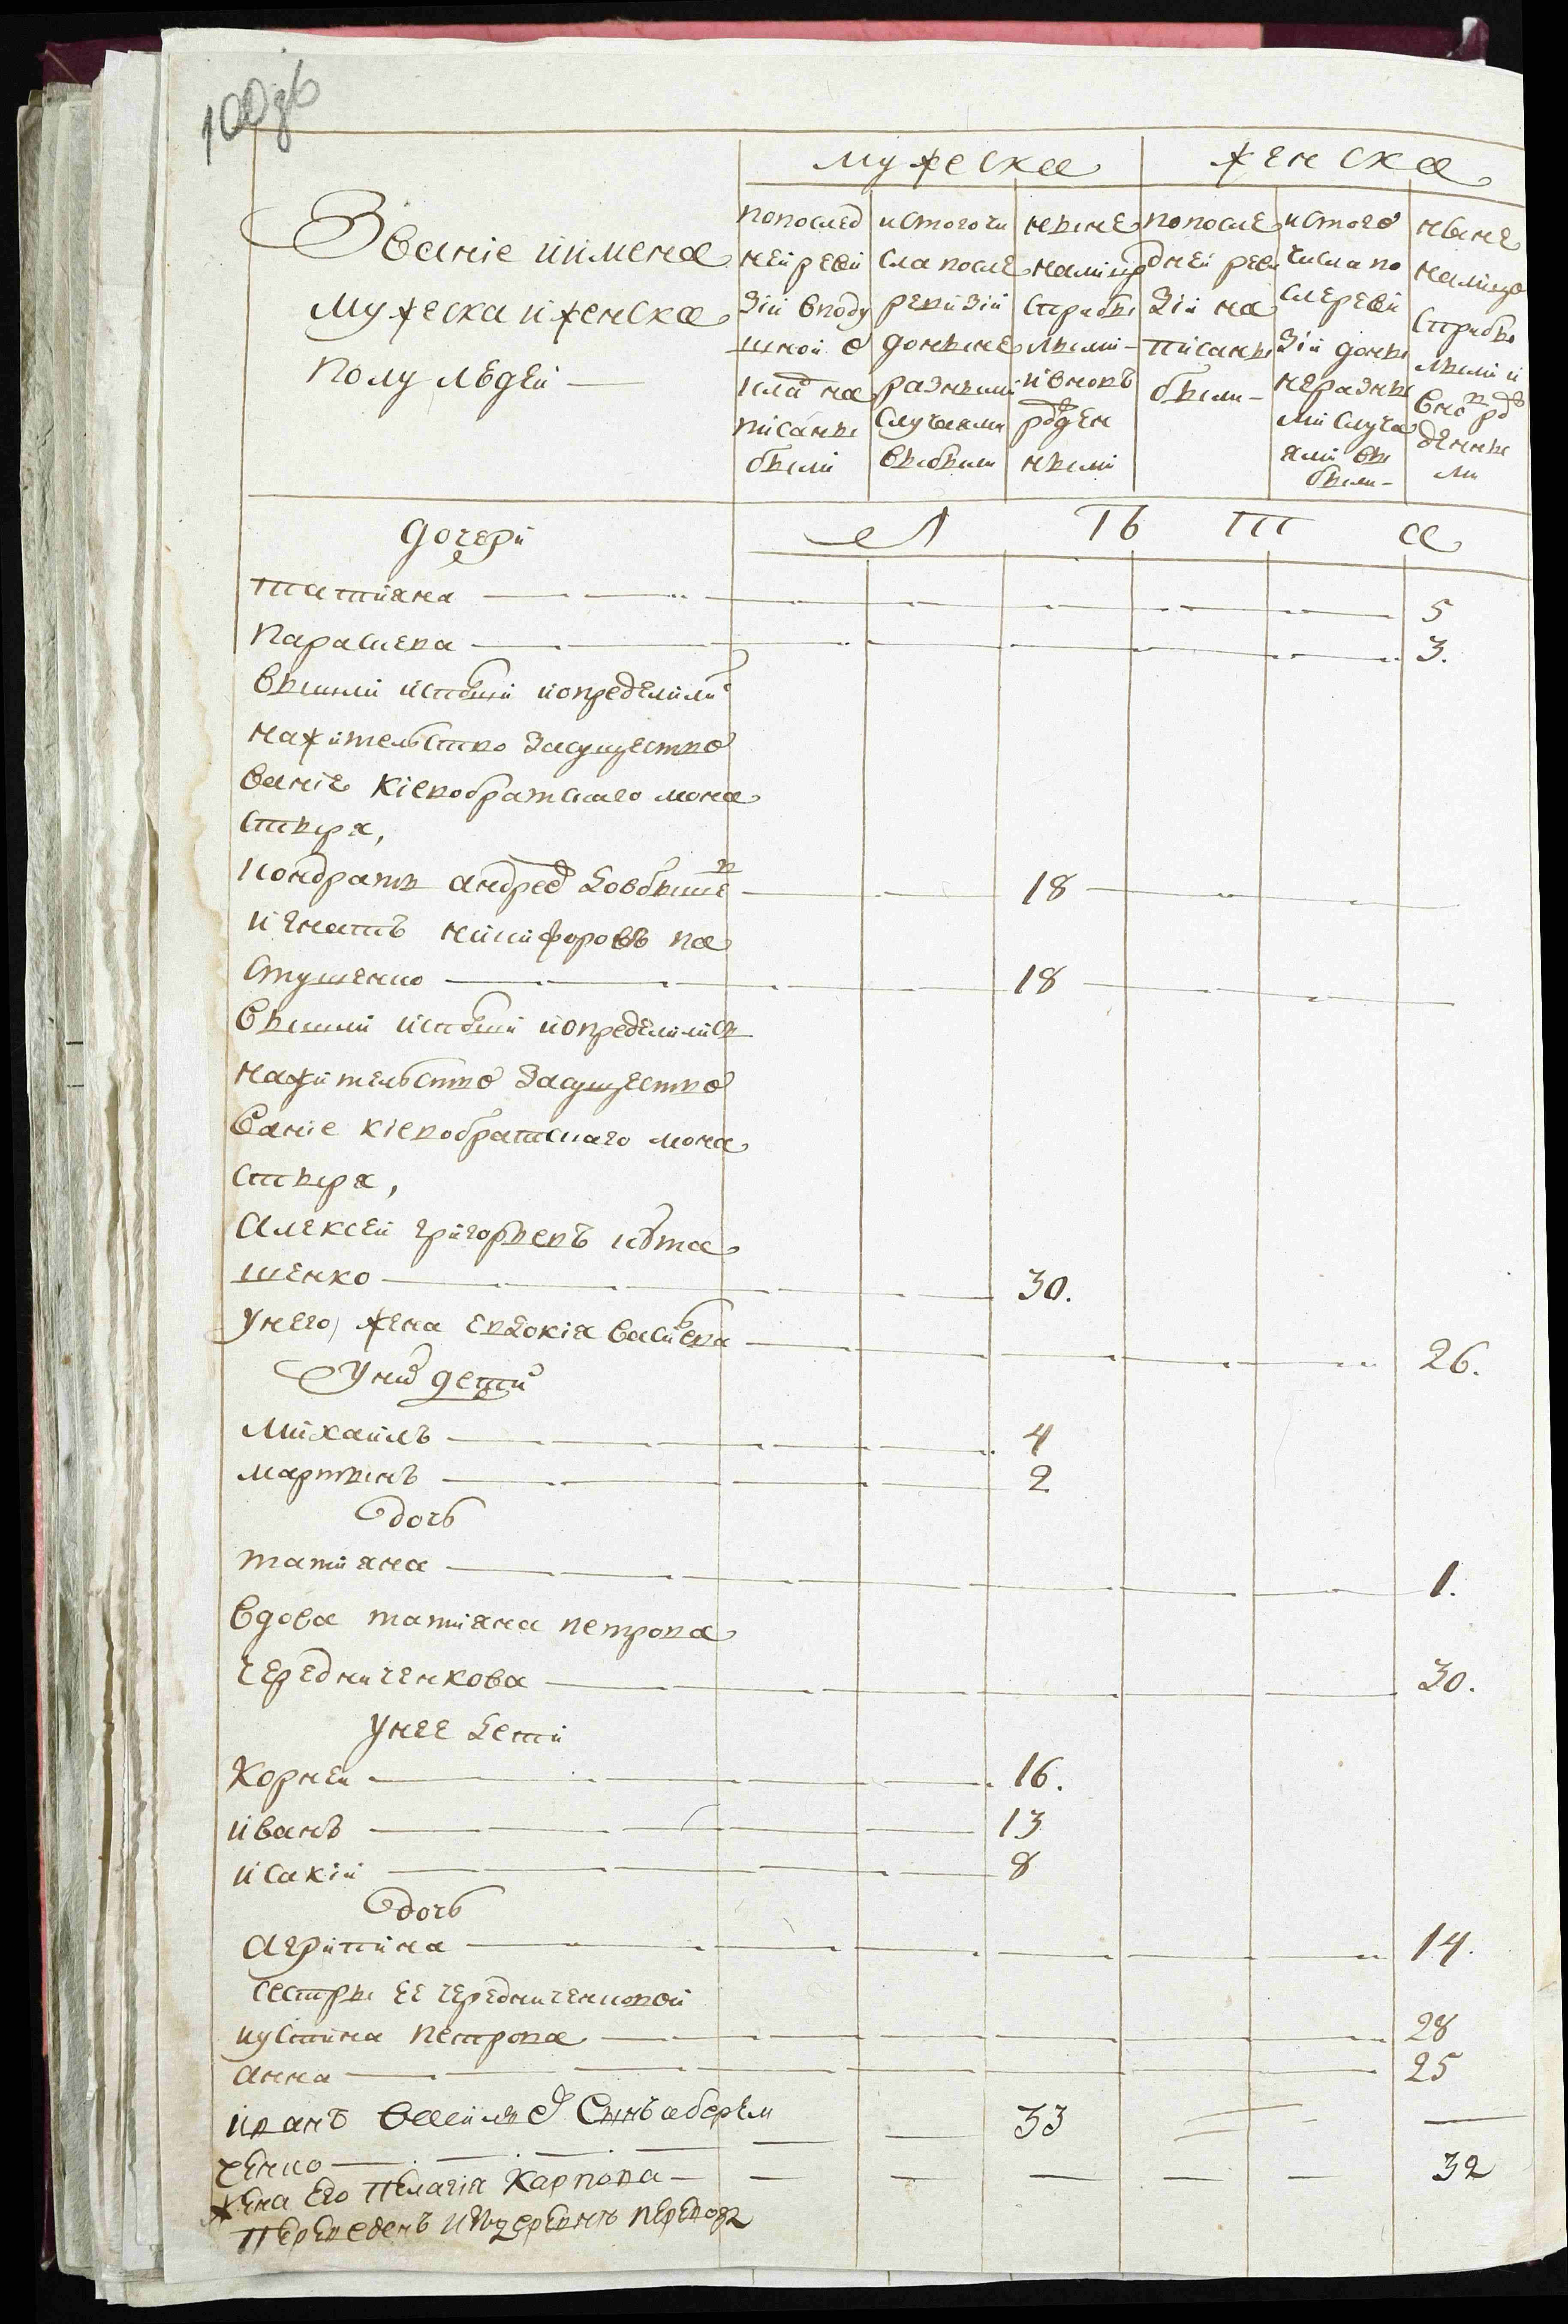 100 зв
Званіе иимена
мужеска иженска
полу людей
мужеска
женска
попослед
ней реви
зіи вподу
шной о
клад на
писаны
были
истогочи
сла после
ревизіи
доныне
разными
случаями
выбыли
ныне
налицо
сприбы
лыми
ивновь
рожден
ными
попосле
дней реви
зіи на
писаны
были
истого
числа по
сле реви
зіи доны
не разны
ми случа
ями вы
были
ныне
налицо
сприбы
лыми и
вновь рож
денны
ми
дочери
Л ѣ т а
татияна 5
параскева 3.
вышли исполши иопределили
нажителство засущество
ваніе кіевобратскаго мона
стыря,
кондратъ андреев довбыше 18
игнатъ никифоровъ па
стушенко 18
вышли исполши иопределились
нажителство засуществo
ваніе кіевобратскаго мона
стыря,
алексей григорьевъ кута
шенко 30.
унего жена евдокія василева 26.
уних дети
михаилъ 4
мартынъ 2
дочь
татияна 1.
вдова татияна петрова
чередниченкова 30.
унее дети
корней 16.
иванъ 13
исакій 8
дочь
агрипина 14.
сестры ее чередниченковой
иустина петрова 28
анна 25
иванъ василев Сынъ 33
ченко
жена его пелагія карпова 32
переведенъ деревни